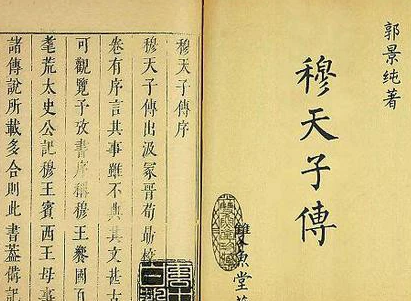 郭景純著
穆天子傳
雙魚堂
穆天子傳序
穆天子傳出汲冢晉荀勗校
卷有序言其事雖不典其文甚古
可觀覽予攷書序稱穆王饗國百
耄荒太史公記穆王賓西王母事
諸傳說所載多合則此書蓋備記